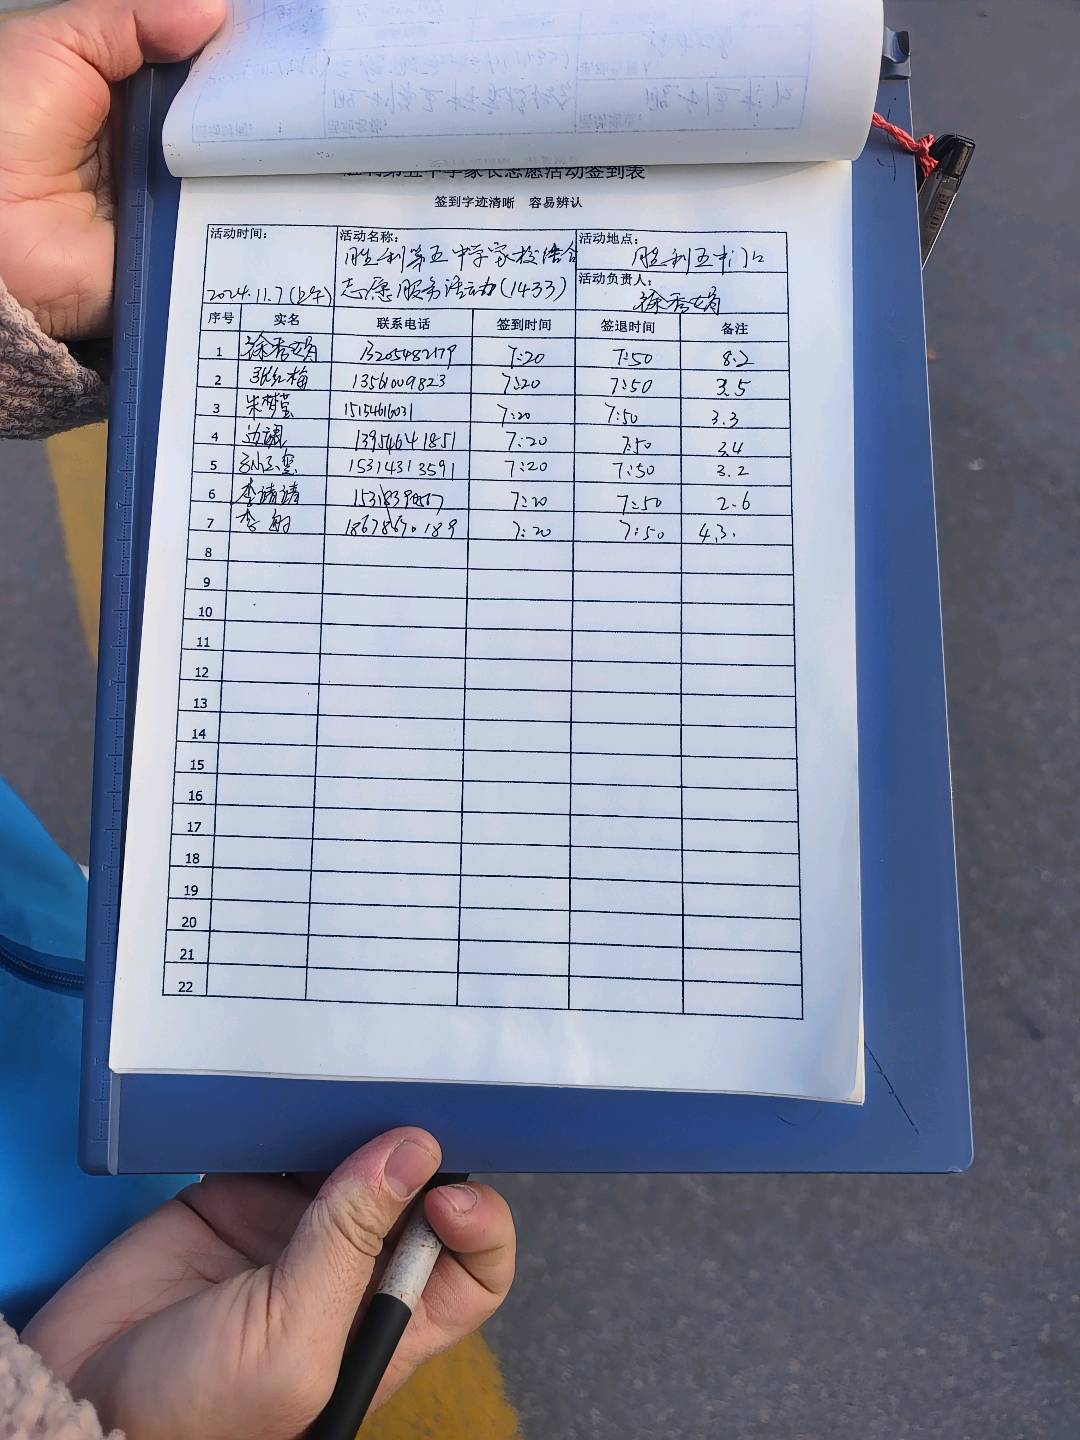 胜利第五中学家长志愿活动签到表
签到字迹清晰 容易辨认
活动时间: 2024.11.7(上午)
活动名称: 胜利第五中学家校结合
志愿服务活动(1433)
活动地点: 胜利五中门口
活动负责人: 徐秀娟
序号 实名 联系电话 签到时间 签退时间 备注
1 徐秀娟 13205482179 7:20 7:50 8.2
2 张红梅 13561009823 7:20 7:50 3.5
3 朱梦莹 15154616031 7:20 7:50 3.3
4 13954641851 7:20 7:50 3.4
5 15314313591 7:20 7:50 3.2
6 李靖靖 7:20 7:50 2.6
7 李 18678670189 7:20 7:50 4.3.
8
9
10
11
12
13
14
15
16
17
18
19
20
21
22